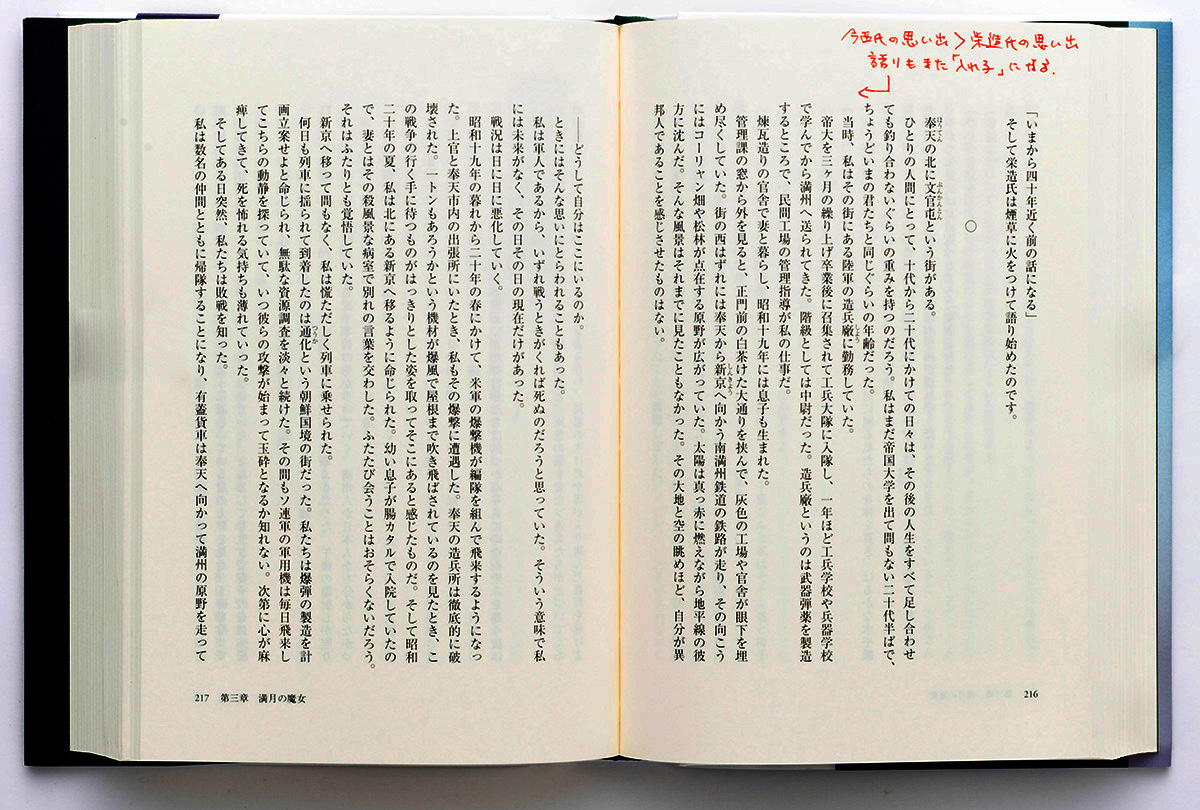 今西氏の思い出>栄造氏の思い出
語りもまた「入れ子」になる。
「いまから四十年近く前の話になる」
そして栄造氏は煙草に火をつけて語り始めたのです。
○
奉天の北に文官屯という街がある。
ほうてん
ぶんかんとん
ひとりの人間にとって、十代から二十代にかけての日々は、その後の人生をすべて足し合わせ
ても釣り合わないぐらいの重みを持つのだろう。私はまだ帝国大学を出て間もない二十代半ばで、
ちょうどいまの君たちと同じぐらいの年齢だった。
当時、私はその街にある陸軍の造兵廠に勤務していた。
しよう
帝大を三ヶ月の繰り上げ卒業後に召集されて工兵大隊に入隊し、一年ほど工兵学校や兵器学校
で学んでから満州へ送られてきた。階級としては中尉だった。造兵廠というのは武器弾薬を製造
するところで、民間工場の管理指導が私の仕事だ。
煉瓦造りの官舎で妻と暮らし、昭和十九年には息子も生まれた。
管理課の窓から外を見ると、正門前の白茶けた大通りを挟んで、灰色の工場や官舎が眼下を埋
め尽くしていた。街の西はずれには奉天から新京へ向かう南満州鉄道の鉄路が走り、その向こう
しんきよう
にはコーリャン畑や松林が点在する原野が広がっていた。太陽は真っ赤に燃えながら地平線の彼
方に沈んだ。そんな風景はそれまでに見たこともなかった。その大地と空の眺めほど、自分が異
邦人であることを感じさせたものはない。
216
――どうして自分はここにいるのか。
ときにはそんな思いにとらわれることもあった。
私は軍人であるから、いずれ戦うときがくれば死ぬのだろうと思っていた。そういう意味で私
には未来がなく、その日その日の現在だけがあった。
戦況は日に日に悪化していく。
昭和十九年の暮れから二十年の春にかけて、米軍の爆撃機が編隊を組んで飛来するようになっ
た。上官と奉天市内の出張所にいたとき、私もその爆撃に遭遇した。奉天の造兵所は徹底的に破
壊された。一トンもあろうかという機材が爆風で屋根まで吹き飛ばされているのを見たとき、こ
の戦争の行く手に待つものがはっきりとした姿を取ってそこにあると感じたものだ。そして昭和
二十年の夏、私は北にある新京へ移るように命じられた。幼い息子が腸カタルで入院していたの
で、妻とはその殺風景な病室で別れの言葉を交わした。ふたたび会うことはおそらくないだろう。
それはふたりとも覚悟していた。
新京へ移って間もなく、私は慌ただしく列車に乗せられた。
何日も列車に揺られて到着したのは通化という朝鮮国境の街だった。私たちは爆弾の製造を計
つうか
画立案せよと命じられ、無駄な資源調査を淡々と続けた。その間もソ連軍の軍用機は毎日飛来し
てこちらの動静を探っていて、いつ彼らの攻撃が始まって玉砕となるか知れない。次第に心が麻
痺してきて、死を怖れる気持ちも薄れていった。
そしてある日突然、私たちは敗戦を知った。
私は数名の仲間とともに帰隊することになり、有蓋貨車は奉天へ向かって満州の原野を走って
217 第三章 満月の魔女